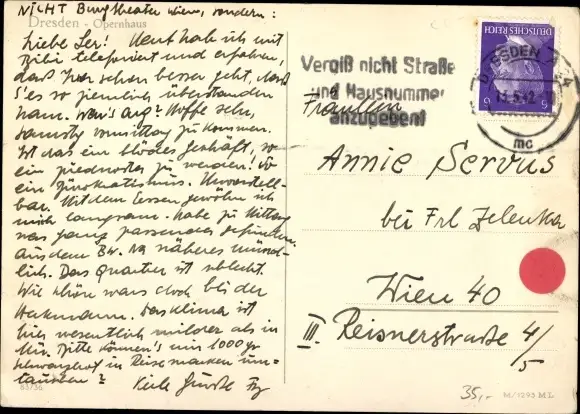 NICHT Burgtheater Wien, sondern:
Dresden - Opernhaus
Liebe Ser! Heut hab ich mit
Bibi telefoniert und erfahren,
daß schon besser geht, daß
S'es so ziemlich überstanden
ham. War's arg? Hoffe sehr,
vormittag zu kommen.
Ist das ein blödes Geschäft, so
ein zu werden! So
ein Bürokratismus. Unvorstell-
bar. Mit dem Essen gewöhn ich
mich langsam. Habe zu Mittag
was ganz passendes gefunden.
aus dem näheres münd-
lich. Das Quartier ist schlecht.
Wie schön wars doch bei der
Hackmann. Das Klima ist
hier wesentlich milder als in
Bitte können's mir 1000 gr
Schwarzbrot in Reisemarken um-
tauschen?
Viele Grüße
83/36
Vergiß nicht Straße
und Hausnummer
anzugeben!
DEUTSCHES REICH
6
6
DRESDEN A 24
mc
Fräulein
Annie Servus
bei Frl Zelenka
Wien 40
III. Reisnerstraße 4/
5
35,-
M/1293 ML